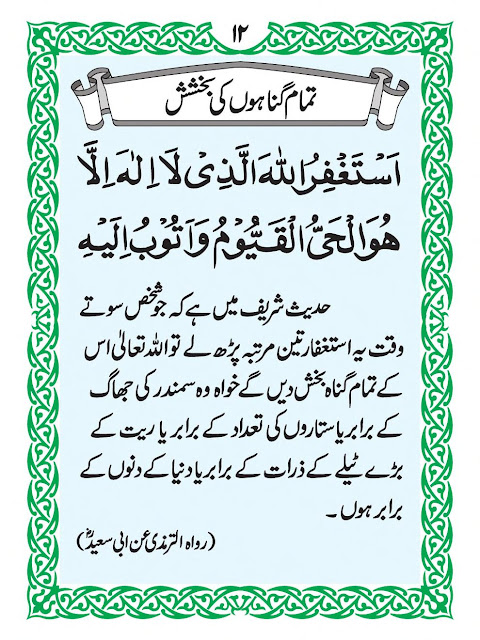 ۱۲
تمام گناہوں کی بخشش
اَسْتَغْفِرُ اللهَ الَّذِیْ لَا اِلٰهَ اِلَّا
هُوَ الْحَیُّ الْقَیُّوْمُ وَ اَتُوْبُ اِلَیْهِ
حدیث شریف میں ہے کہ جو شخص سوتے
وقت یہ استغفار تین مرتبہ پڑھ لے تو اللہ تعالیٰ اس
کے تمام گناہ بخش دیں گے خواہ وہ سمندر کی جھاگ
کے برابر یا ستاروں کی تعداد کے برابر یا ریت کے
بڑے ٹیلے کے ذرات کے برابر یا دنیا کے دنوں کے
برابر ہوں ۔
(رواہ الترمذی عن ابی سعیدؓ)